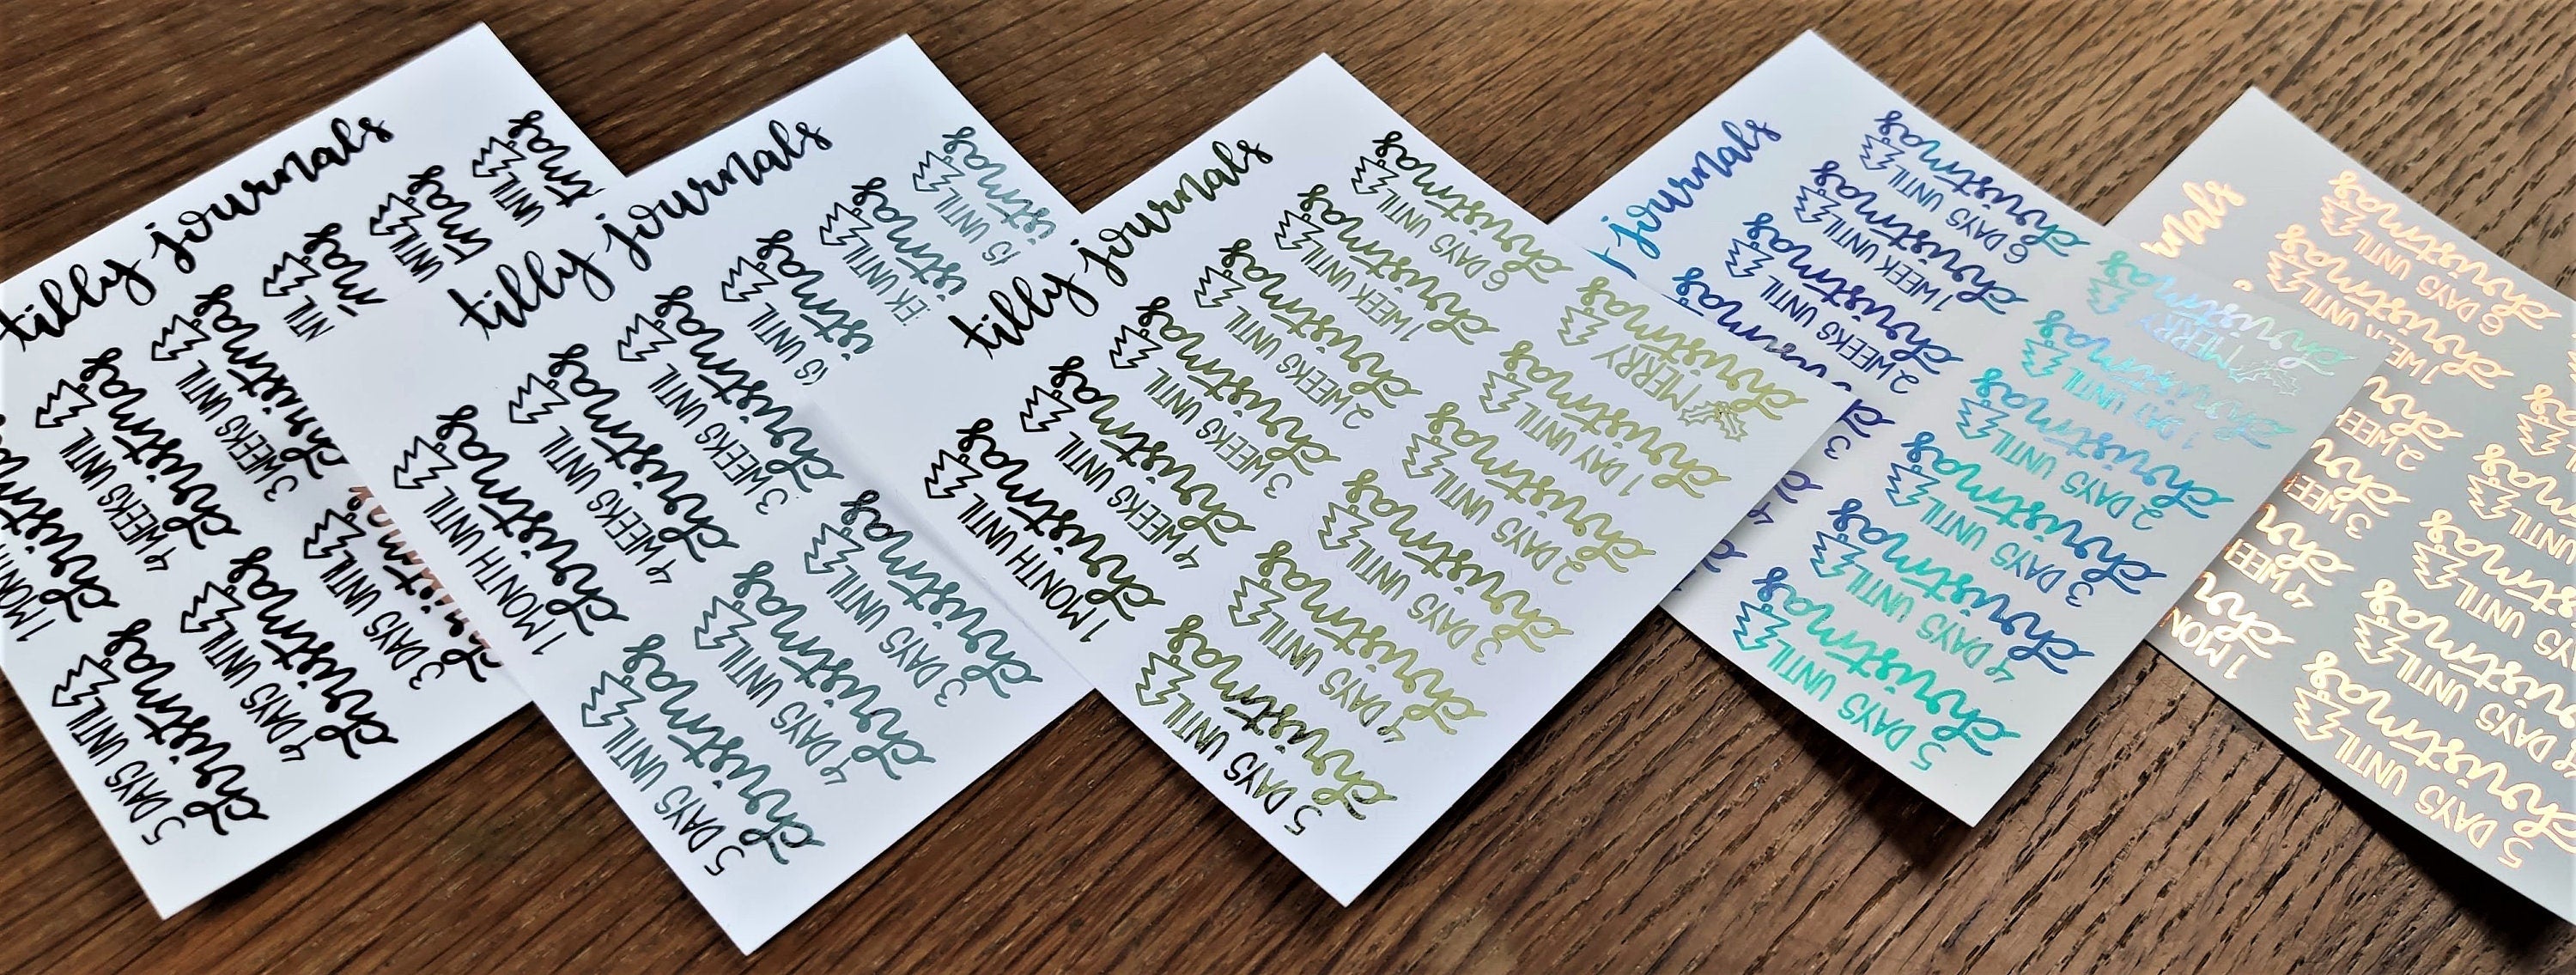 tilly journals
1 MONTH
christmas
4 WEEKS UNTIL
christmas
3 WEEKS UNTIL
christmas
UNTIL
UNTIL
5 DAYS UNTIL
christmas
4 DAYS UNTIL
christmas
3 DAYS UNTIL
christmas
tilly journals
1 MONTH UNTIL
christmas
4 WEEKS UNTIL
christmas
3 WEEKS UNTIL
christmas
UNTIL
UNTIL
UNTIL
5 DAYS UNTIL
christmas
4 DAYS UNTIL
christmas
3 DAYS UNTIL
christmas
tilly journals
1 MONTH UNTIL
christmas
4 WEEKS UNTIL
christmas
3 WEEKS UNTIL
christmas
2 WEEKS UNTIL
christmas
1 WEEK UNTIL
christmas
6 DAYS UNTIL
christmas
5 DAYS UNTIL
christmas
4 DAYS UNTIL
christmas
3 DAYS UNTIL
christmas
2 DAYS UNTIL
christmas
1 DAY UNTIL
christmas
MERRY
christmas
journals
2 WEEKS UNTIL
christmas
1 WEEK UNTIL
christmas
6 DAYS UNTIL
christmas
5 DAYS UNTIL
christmas
4 DAYS UNTIL
christmas
3 DAYS UNTIL
christmas
2 DAYS UNTIL
christmas
1 DAY UNTIL
christmas
MERRY
christmas
1 WEEK UNTIL
christmas
6 DAYS UNTIL
christmas
5 DAYS UNTIL
christmas
4 DAYS UNTIL
UNTIL
UNTIL